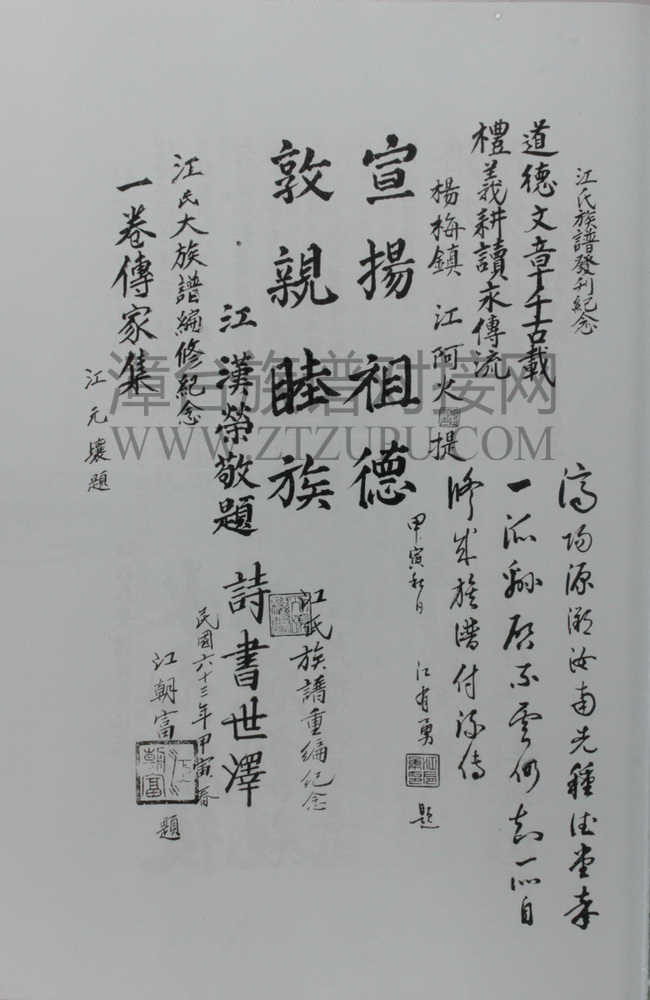 江氏族譜發刊紀念
道德文章千古載
禮義耕讀永傳流
楊梅鎮 江阿火 提
宣揚祖德
敦親睦族
江漢榮敬題
江氏大族譜編修紀念
一卷傳家集
江元壤題
濟陽源溯汝南先種德堂
一派
修成族譜付流傳
甲寅秋日 江有勇 題
江氏族譜重編紀念
詩書世澤
民國六十三年甲寅春
江朝富 題
漳台族谱对接网
WWW.ZTZUPU.COM